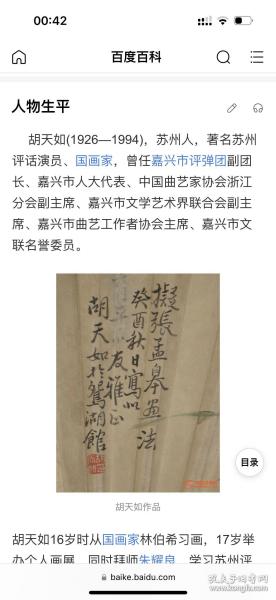 00:42
百度百科
人物生平
胡天如(1926—1994)，苏州人，著名苏州
评话演员、国画家，曾任嘉兴市评弹团副团
长、嘉兴市人大代表、中国曲艺家协会浙江
分会副主席、嘉兴市文学艺术界联合会副主
席、嘉兴市曲艺工作者协会主席、嘉兴市文
联名誉委员。
擬張孟皋畫法
癸酉秋日寫似
友雅正
胡天如於鴛湖館
目录
胡天如作品
胡天如16岁时从国画家林伯希习画，17岁举
办个人画展，同时拜师朱耀良，学习苏州评
baike.baidu.com